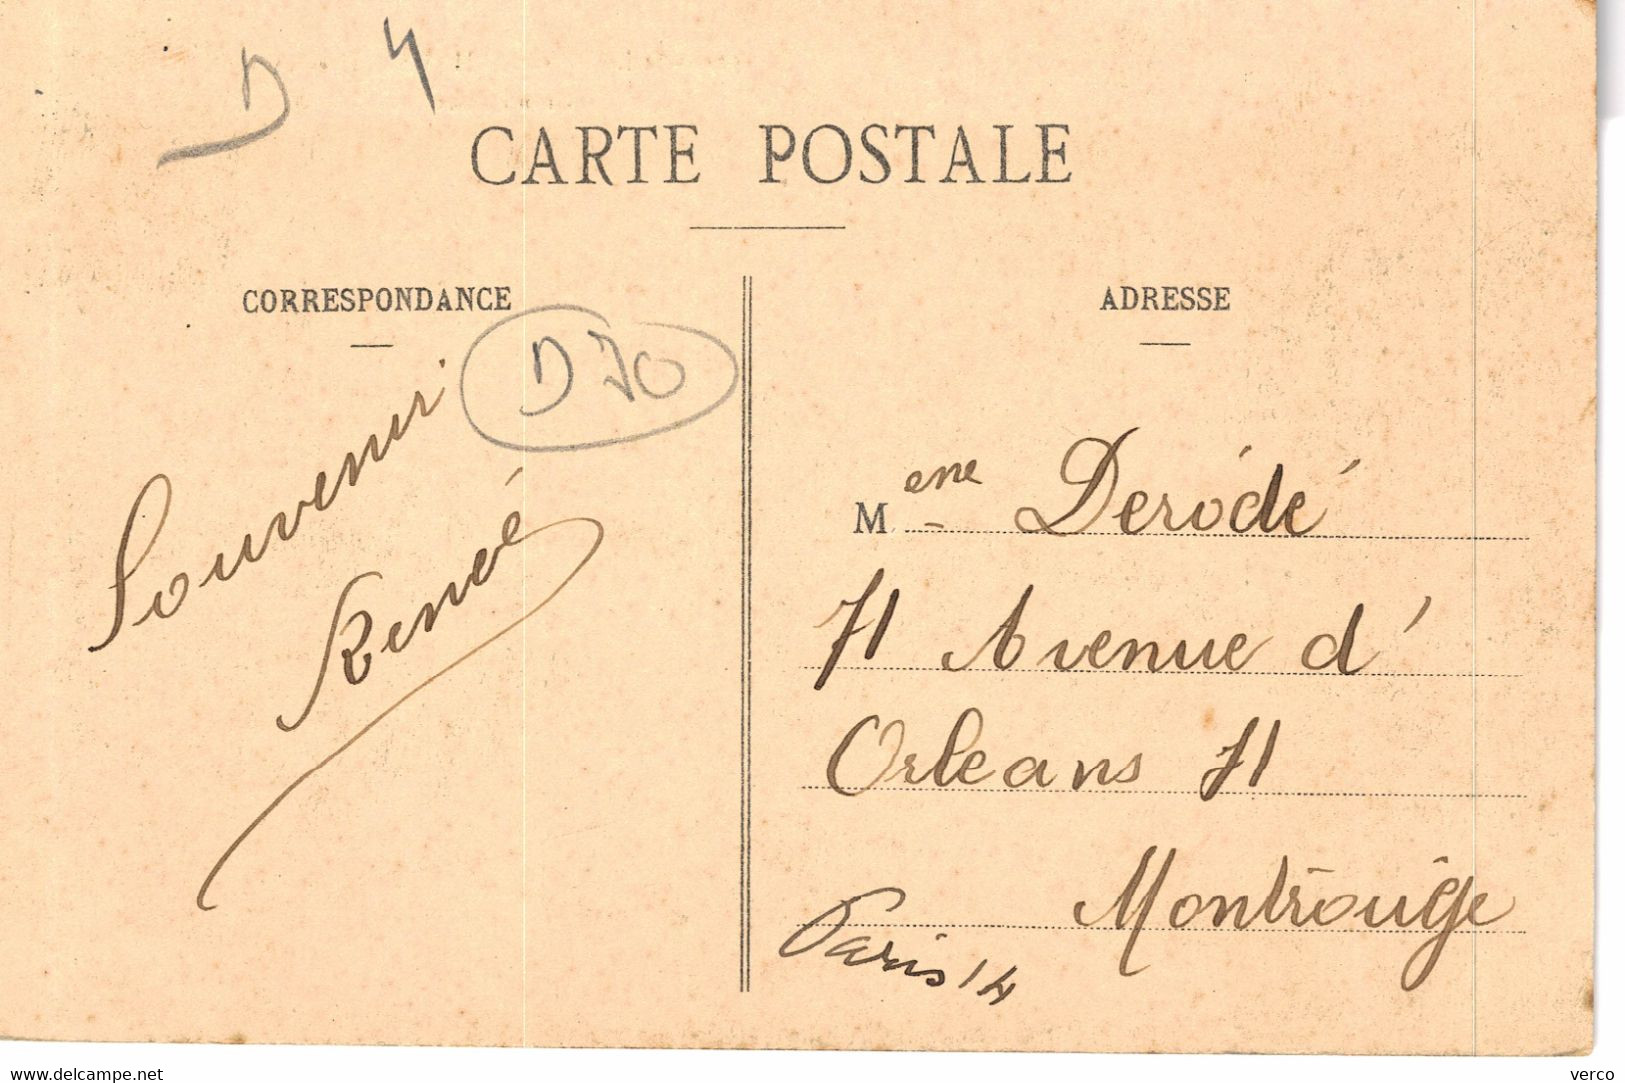 D 4
CARTE POSTALE
CORRESPONDANCE
D70
Souvenir
Renée
ADRESSE
Mme Derodé
71 Avenue d'
Orleans 71
Montrouge
Paris 14
www.delcampe.net
verco